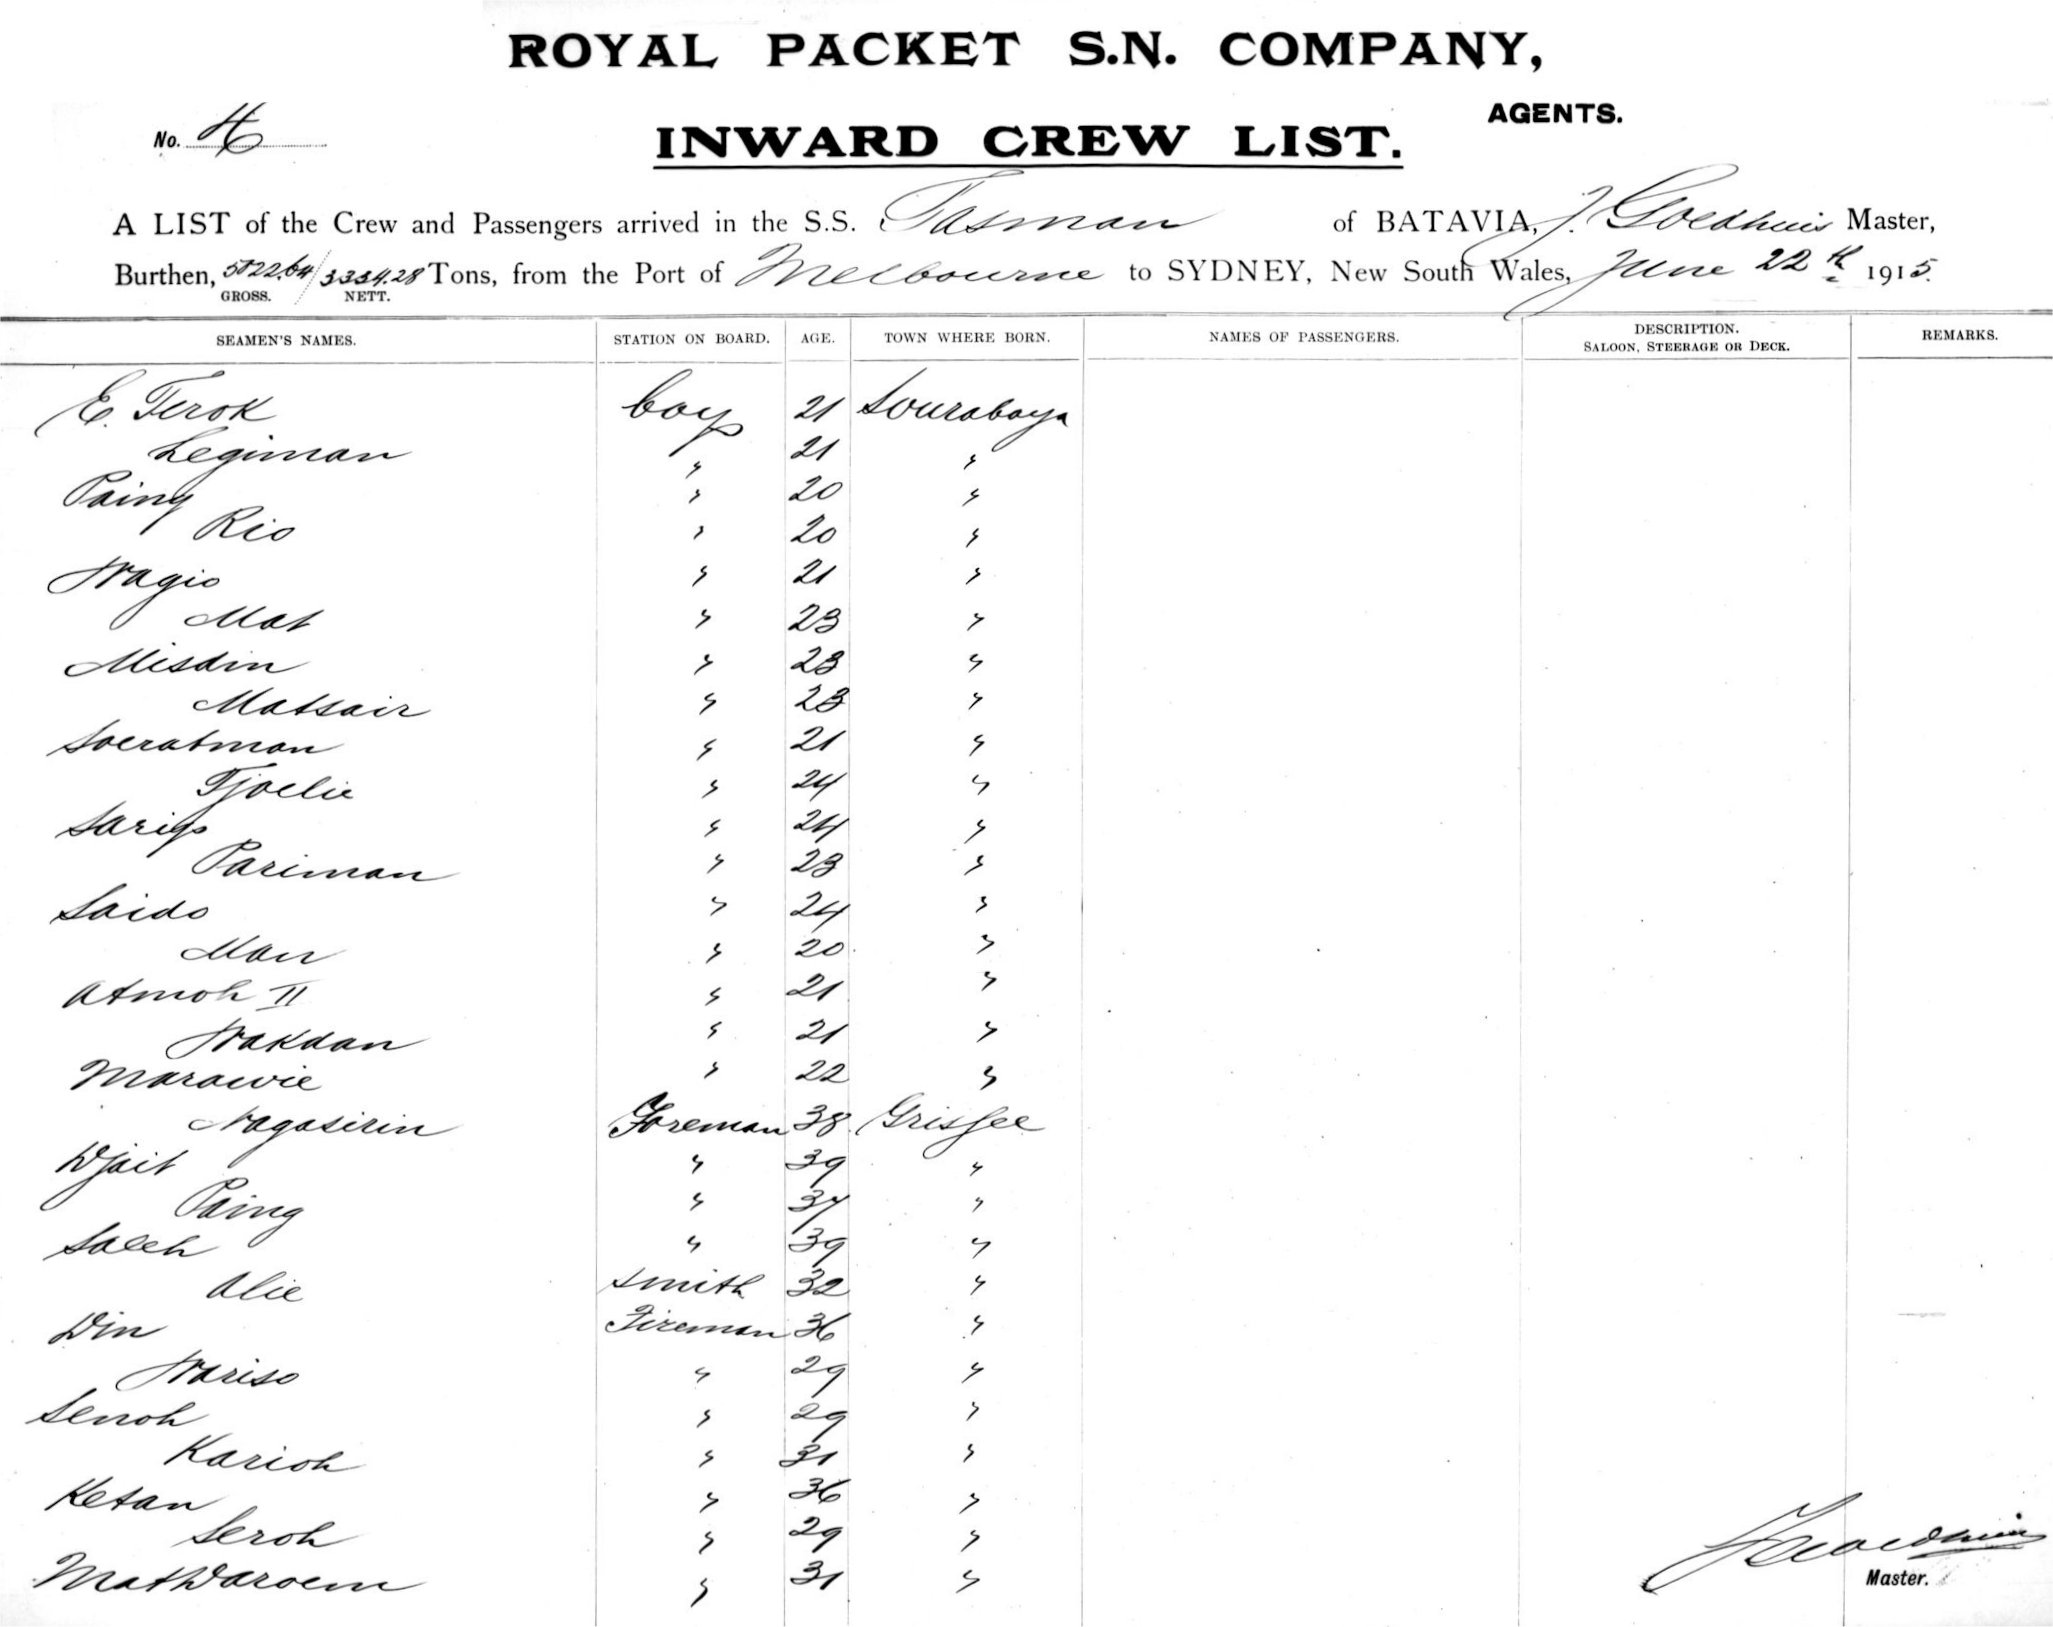 ROYAL PACKET S.N. COMPANY,
AGENTS.
No. 4
INWARD CREW LIST.
A LIST of the Crew and Passengers arrived in the S.S. Tasman of BATAVIA, J. Goedhuis Master,
Burthen, 5022.64/3334.28 Tons, from the Port of Melbourne to SYDNEY, New South Wales, June 22th 1915.
GROSS. NETT.
SEAMEN'S NAMES. STATION ON BOARD. AGE. TOWN WHERE BORN. NAMES OF PASSENGERS. DESCRIPTION. SALOON, STEERAGE OR DECK. REMARKS.
E. Terok boy 21 Sourabaya
Legiman " 21 "
Paing " 20 "
Rio " 20 "
Wagio " 21 "
Mat " 23 "
Misdin " 23 "
Matsair " 23 "
Soeratman " 21 "
Tjoelie " 24 "
Sarip " 24 "
Pariman " 23 "
Saido " 24 "
Man " 20 "
Atmoh II " 21 "
Wakdan " 21 "
Marawie " 22 "
Nagasirin Foreman 38 Grissee
Djait " 39 "
Paing " 37 "
Saleh " 39 "
Alie smith 32 "
Din Fireman 36 "
Wariso " 29 "
Senoh " 29 "
Karioh " 31 "
Ketan " 36 "
Seroh " 29 "
MatDaroem " 31 "
J Goedhuis
Master.